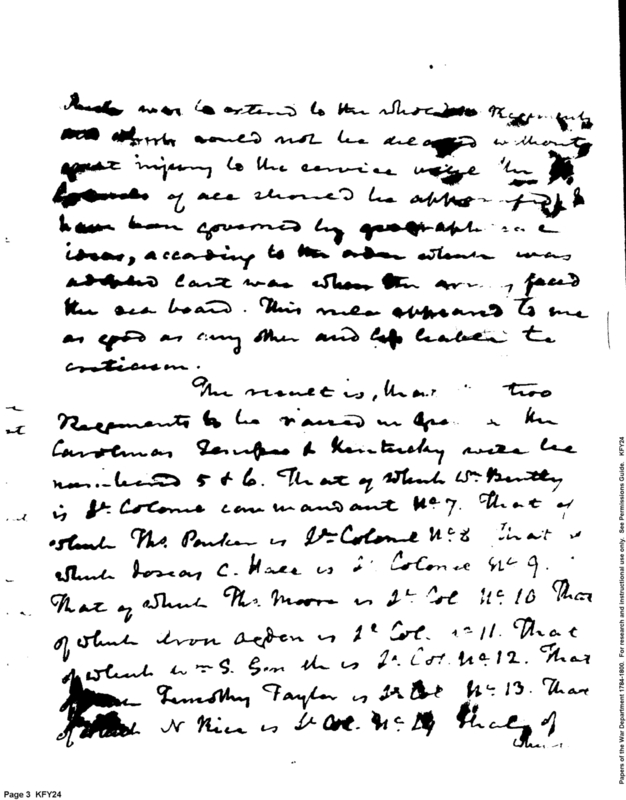 was to extend to the whole
would not be delayed without
great injury to the service
of all should be
have been governed by geographical
ideas, according to the order which was
adopted last war when the army faced
the sea board. This rule appeared to me
as good as any other and less liable to
criticism.
The result is, that two
Regiments to be raised in the
Carolinas & Kentucky will be
numbered 5 & 6. That of which Wm Bently
is Lt Colonel commandant No 7. That of
which Ths. Parker is Lt Colonel No 8 That
which Josias C. Hall is Colonel No 9.
That of which Ths. Moore is Lt Col No 10 That
of which Aron Ogden is Lt Col. 11. That
of which Wm S. Smith is Lt Col. No 12. That
Timothy Taylor is Lt Col No 13. That
of which N Rice is Lt Col. No 14 That of
Page 3 KFY24
Papers of the War Department 1784-1800. For research and instructional use only. See Permissions Guide. KFY24